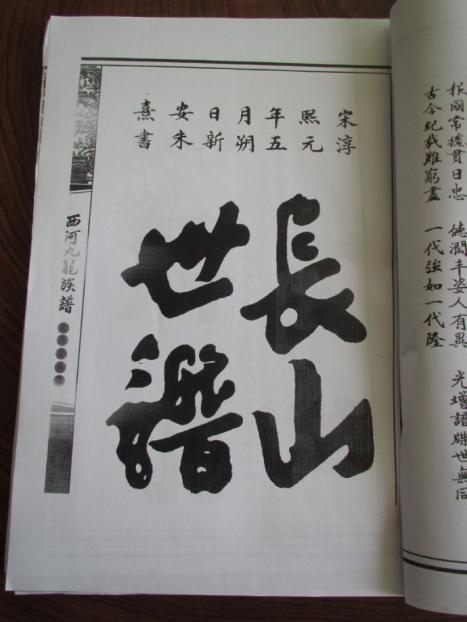 報國常攄貫日忠 德潤丰姿人有異 光增譜牒世無同
古今紀載難窮盡 一代強如一代隆
宋淳
熙元
年五
月朔
日新
安朱
熹書
長山
世譜
西河九龍族譜